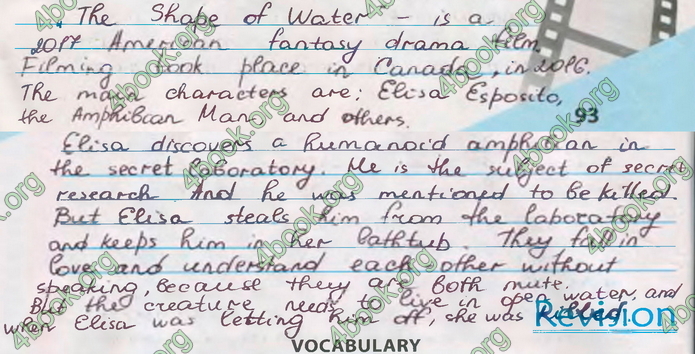 The Shape of Water – is a
2017 American fantasy drama film.
Filming took place in Canada, in 2016.
The main characters are: Elisa Esposito,
the Amphibian Man and others.
93
Elisa discovers a humanoid amphibian in
the secret laboratory. He is the subject of secret
research. And he was mentioned to be killed.
But Elisa steals him from the laboratory
and keeps him in her bathtub. They fall in
love and understand each other without
speaking, because they are both mute.
But the creature needs to live in open water, and
when Elisa was letting him off, she was killed.
Revision
VOCABULARY
4book.org